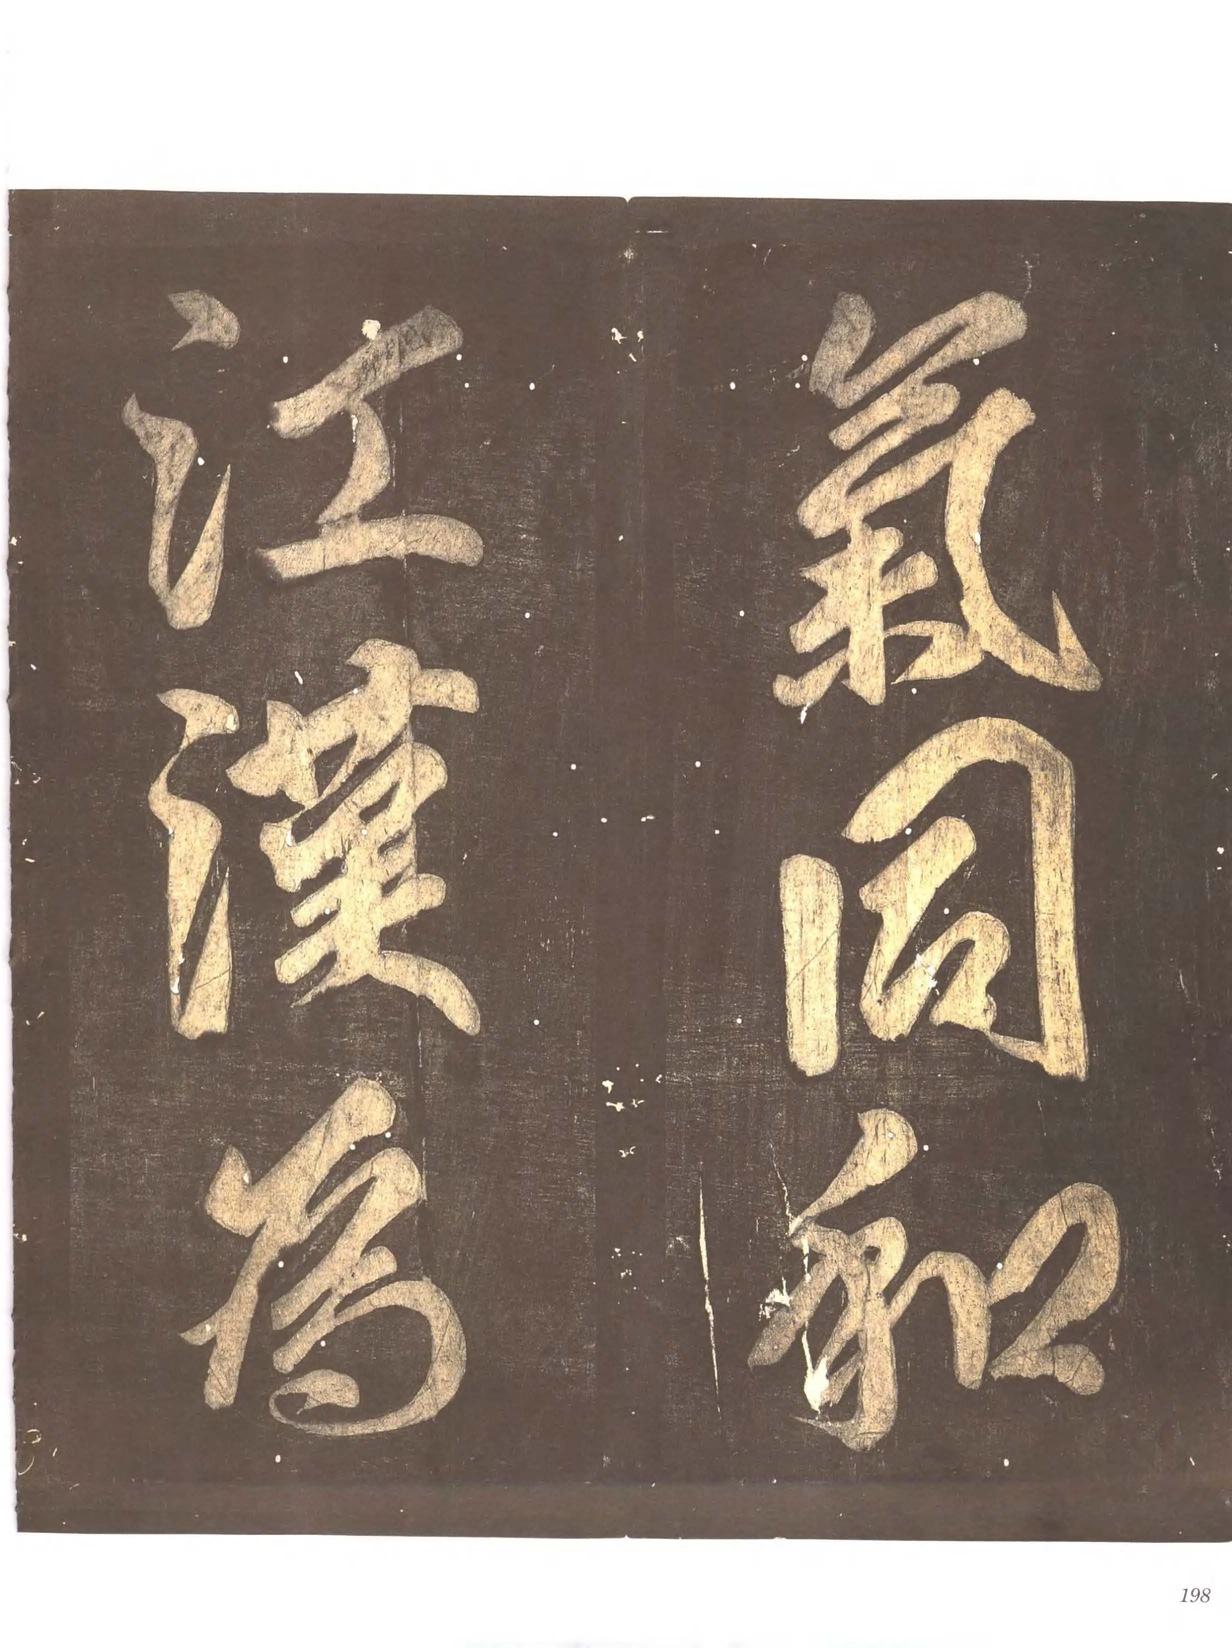 氣同和
江漢為
198